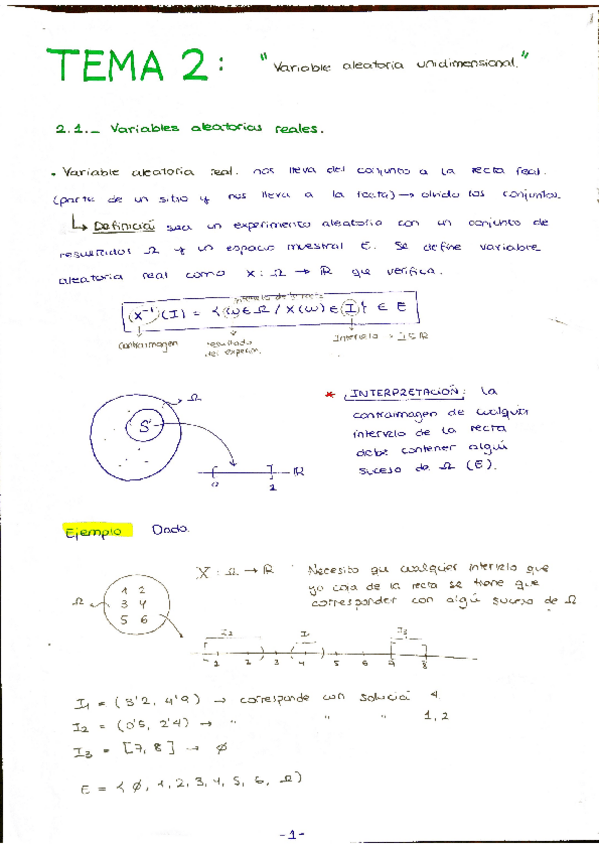 TEMA 2: "Variable aleatoria unidimensional."
2.1._ Variables aleatorias reales.
• Variable aleatoria real. nos lleva del conjunto a la recta real.
(parte de un sitio y nos lleva a la recta) → olvido los conjuntos.
↳ Definició sea un experimento aleatorio con un conjunto de
resultados Ω y un espacio muestral E. Se define variable
aleatoria real como X: Ω → ℝ que verifica.
intervalo de la recta
X⁻¹(I) = {ω ∈ Ω / X(ω) ∈ I} ∈ E
contraimagen resultado del experim. Intervalo
Ω
S
ℝ
2
* INTERPRETACIÓN: la
contraimagen de cualquier
intervalo de la recta
debe contener algú
suceso de Ω (E).
Ejemplo Dado.
X: Ω → ℝ Necesito qu cualquier intervalo que
yo coja de la recta se tiene que
corresponder con algú suceso de Ω
Ω
1 2
3 4
5 6
I2 I1 I3
1 2 3 4 5 6 7 8
I1 = (3'2, 4'9) → corresponde con solució 4.
I2 = (0'5, 2'4) → " " " 1, 2
I3 = [7, 8] → ∅
E = {∅, 1, 2, 3, 4, 5, 6, Ω}
-1-